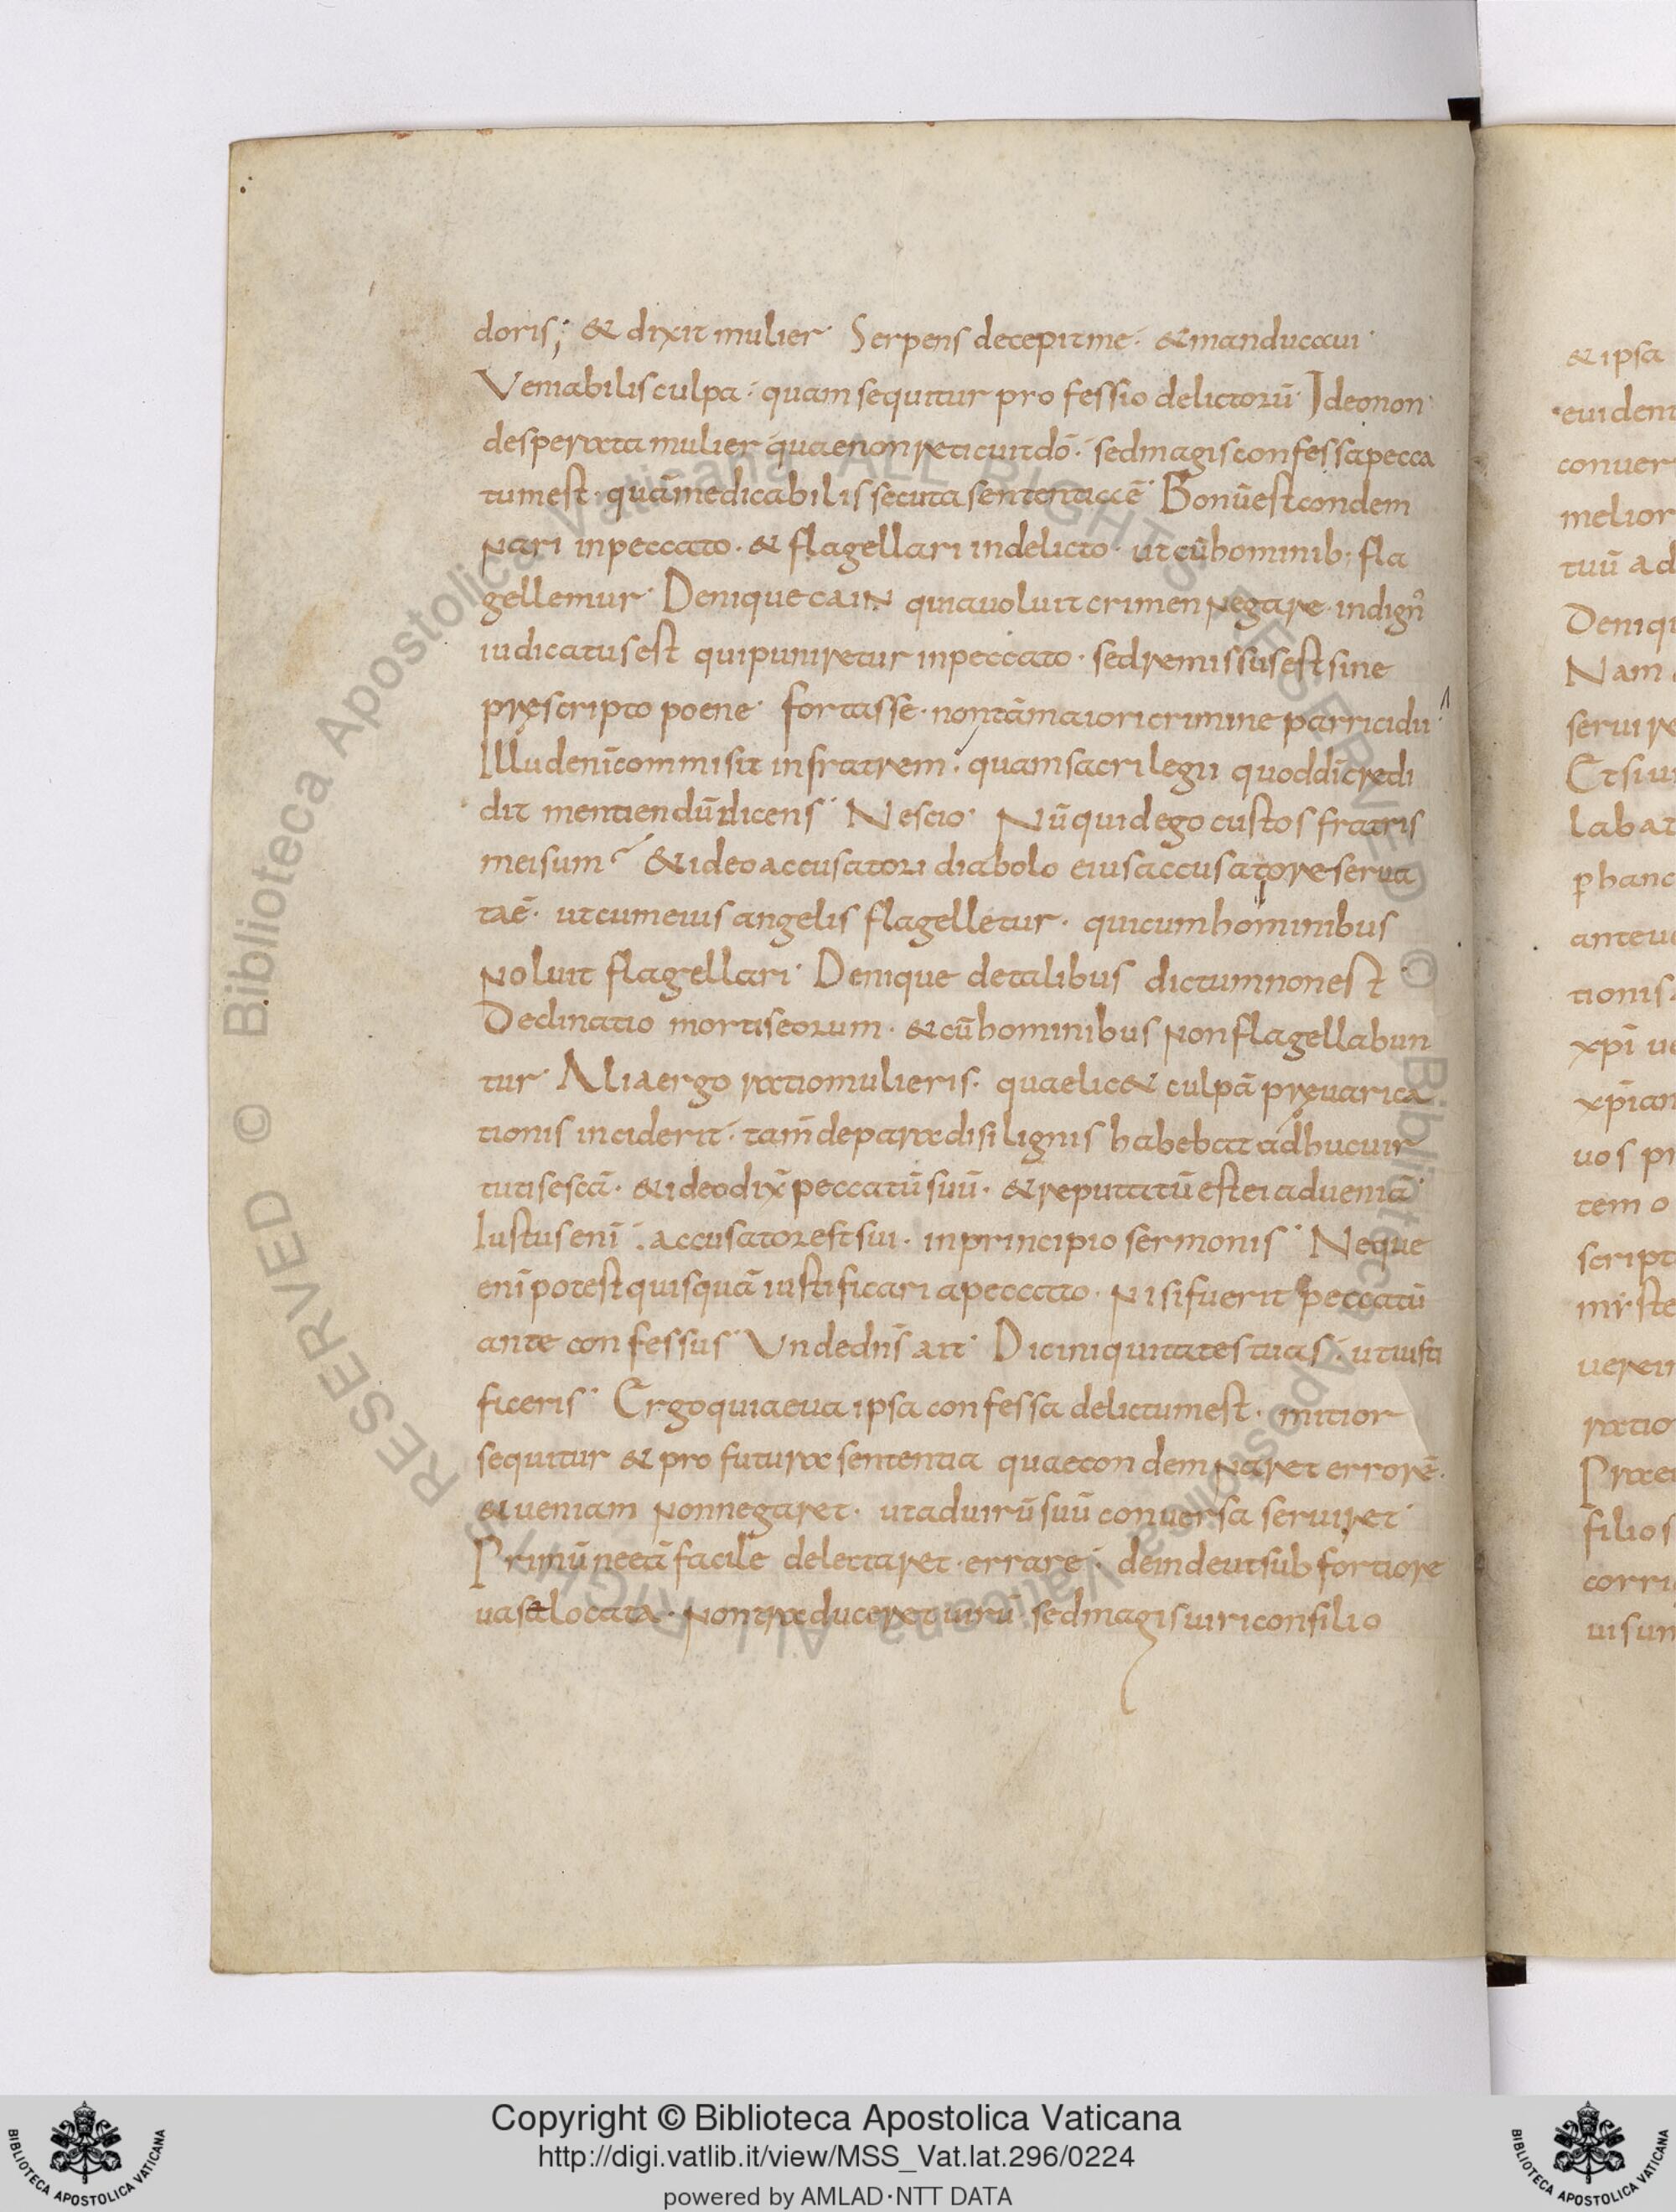 doris; & dixit mulier· Serpens decepit me· & manducaui·
Veniabilis culpa· quam sequitur professio delictorū· Ideo non
desperata mulier quae non reticuit dō· sed magis confessa pecca
tum est· quā medicabilis secuta sententia ē· Bonū est condem
nari in peccato· & flagellari in delicto· ut cū hominib; fla
gellemur· Denique cain quia uoluit crimen negare· indign᾽
iudicatus est qui puniretur in peccato· sed remissus est sine
pręscripto poene· fortasse· non tā maiori crimine parricidii·
Illud enī commisit in fratrem· quam sacrilegii quod dm̄ credi
dit mentiendū dicens· Nescio· Nūquid ego custos fratris
mei sum & ideo accusatori diabolo eius accusatore serua
ta ē· ut cum eius angelis flagelletur· qui cum hominibus
noluit flagellari· Denique de talibus dictum non est·
Declinatio mortis eorum· & cū hominibus non flagellabun
tur· Alia ergo ratio mulieris· quae lic& culpā pręuarica
tionis inciderit· tam̄ de paradisi lignis habebat adhuc uir
tutis escā· & ideo dix̄ peccatū suū· & reputatū est ei ad ueniā·
Iustus enī· accusator est sui· in principio sermonis· Neque
enī potest quisquā iustificari a peccato· nisi fuerit peccatū
ante confessus· Unde dn̄s ait· Dic iniquitates tuas· ut iusti
ficeris· Ergo quia eua ipsa confessa delictum est· mitior
sequitur & profutura sententia quae condemnaret errorē·
& ueniam non negaret· ut ad uirū suū conuersa seruiret·
Primū ne eā facile delectaret· errare· deinde ut sub fortiore
uasa locata· non traduceret uirū· sed magis uiri consilio
& ipsa
euident
conuer
melior
tuū ad
Deniqu
Nam
seruire
Et si ui
labat
ꝑ hanc
anteu
tionis·
xp̄i ue
xp̄ian
uos pr
tem o
script
myste
uerein
ratio
Prae
filios
corri
uisun
Biblioteca Apostolica Vaticana ALL RIGHTS RESERVED ©
Biblioteca Apostolica Vaticana ALL RIGHTS RESERVED ©
Copyright © Biblioteca Apostolica Vaticana
http://digi.vatlib.it/view/MSS_Vat.lat.296/0224
powered by AMLAD·NTT DATA
BIBLIOTECA APOSTOLICA VATICANA
BIBLIOTECA APOSTOLICA VATICANA